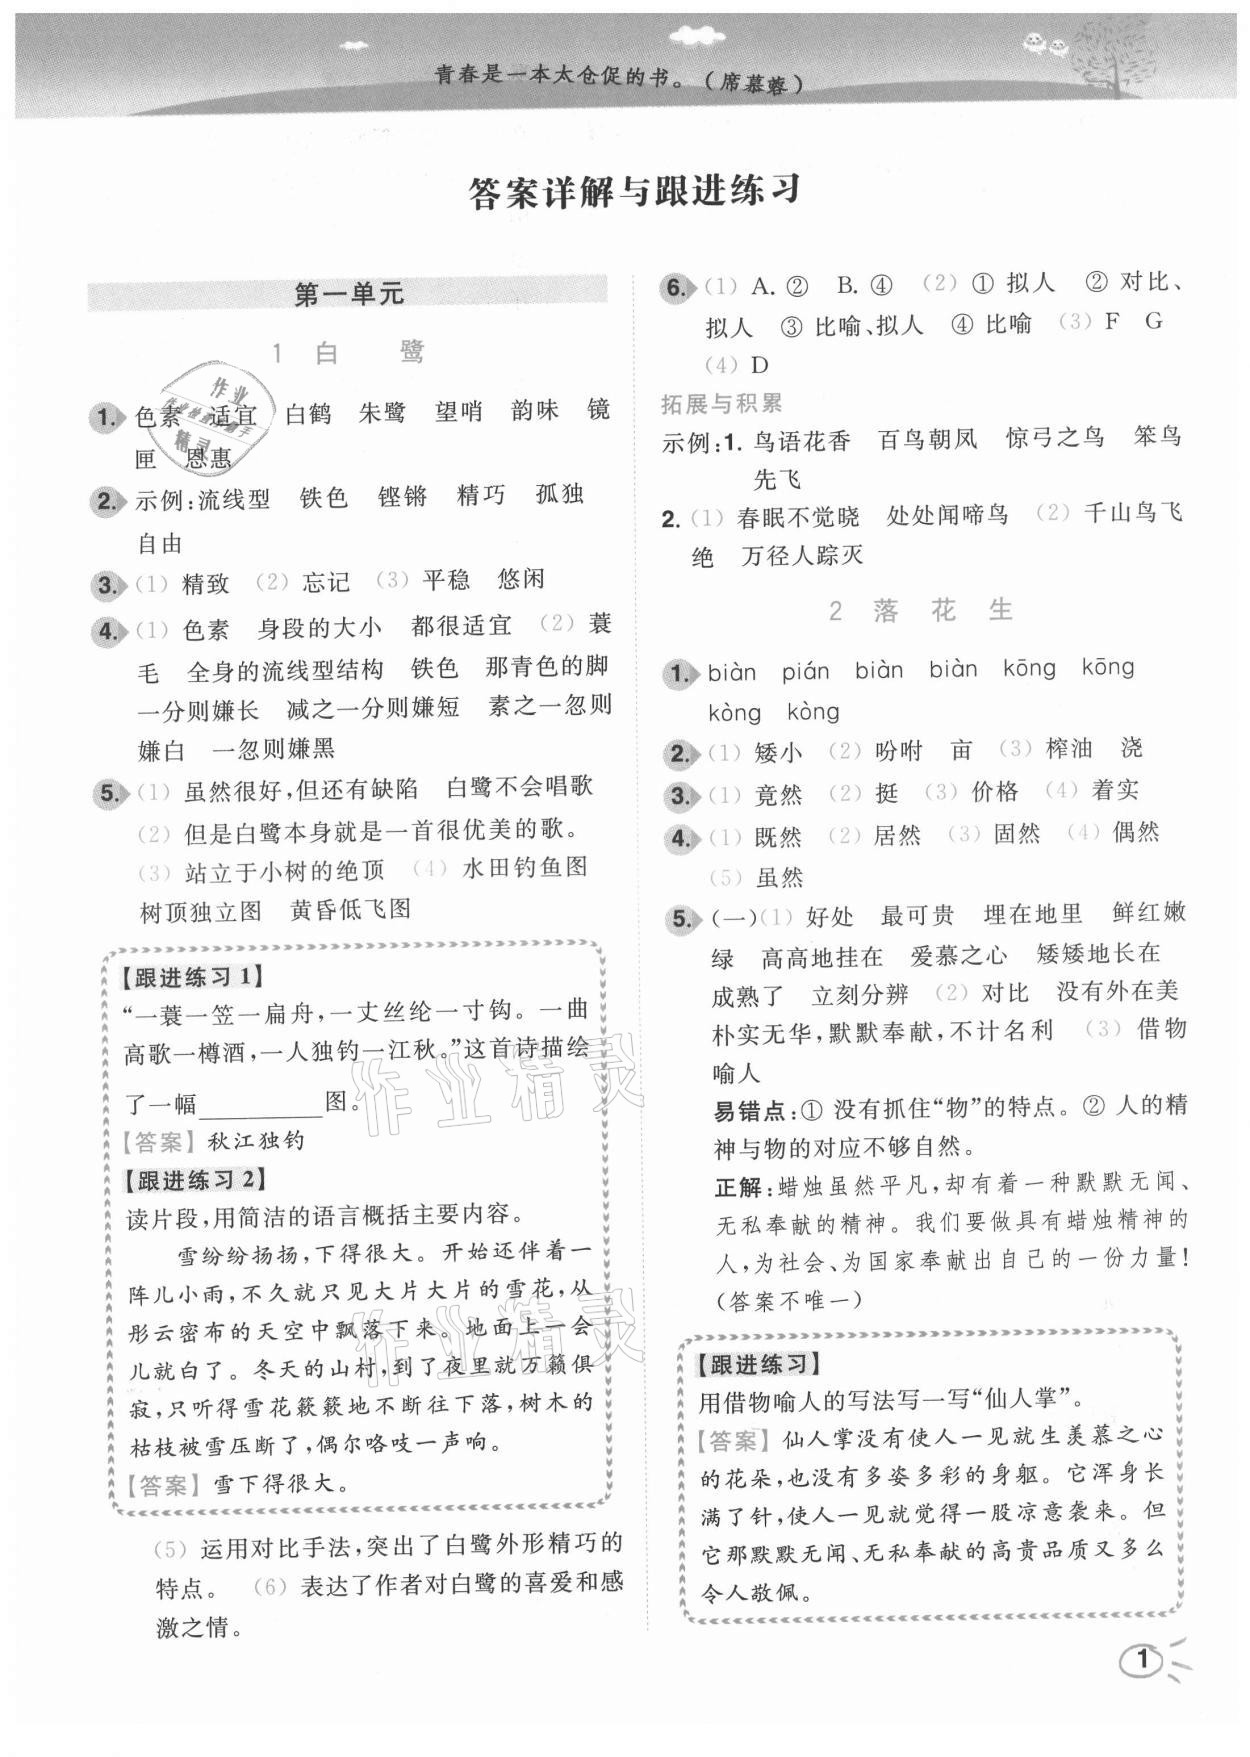 青春是一本太仓促的书。（席慕蓉）
答案详解与跟进练习
第一单元
1 白 鹭
1. 色素 适宜 白鹤 朱鹭 望哨 韵味 镜
匣 恩惠
2. 示例：流线型 铁色 铿锵 精巧 孤独
自由
3. （1）精致 （2）忘记 （3）平稳 悠闲
4. （1）色素 身段的大小 都很适宜 （2）蓑
毛 全身的流线型结构 铁色 那青色的脚
一分则嫌长 减之一分则嫌短 素之一忽则
嫌白 一忽则嫌黑
5. （1）虽然很好，但还有缺陷 白鹭不会唱歌
（2）但是白鹭本身就是一首很优美的歌。
（3）站立于小树的绝顶 （4）水田钓鱼图
树顶独立图 黄昏低飞图
【跟进练习1】
“一蓑一笠一扁舟，一丈丝纶一寸钩。一曲
高歌一樽酒，一人独钓一江秋。”这首诗描绘
了一幅__________图。
【答案】秋江独钓
【跟进练习2】
读片段，用简洁的语言概括主要内容。
雪纷纷扬扬，下得很大。开始还伴着一
阵儿小雨，不久就只见大片大片的雪花，从
彤云密布的天空中飘落下来。地面上一会
儿就白了。冬天的山村，到了夜里就万籁俱
寂，只听得雪花簌簌地不断往下落，树木的
枯枝被雪压断了，偶尔咯吱一声响。
【答案】雪下得很大。
（5）运用对比手法，突出了白鹭外形精巧的
特点。 （6）表达了作者对白鹭的喜爱和感
激之情。
6. （1）A. ② B. ④ （2）① 拟人 ② 对比、
拟人 ③ 比喻、拟人 ④ 比喻 （3）F G
（4）D
拓展与积累
示例：1. 鸟语花香 百鸟朝凤 惊弓之鸟 笨鸟
先飞
2. （1）春眠不觉晓 处处闻啼鸟 （2）千山鸟飞
绝 万径人踪灭
2 落 花 生
1. biàn pián biàn biàn kōng kōng
kòng kòng
2. （1）矮小 （2）吩咐 亩 （3）榨油 浇
3. （1）竟然 （2）挺 （3）价格 （4）着实
4. （1）既然 （2）居然 （3）固然 （4）偶然
（5）虽然
5. （一）（1）好处 最可贵 埋在地里 鲜红嫩
绿 高高地挂在 爱慕之心 矮矮地长在
成熟了 立刻分辨 （2）对比 没有外在美
朴实无华，默默奉献，不计名利 （3）借物
喻人
易错点：① 没有抓住“物”的特点。② 人的精
神与物的对应不够自然。
正解：蜡烛虽然平凡，却有着一种默默无闻、
无私奉献的精神。我们要做具有蜡烛精神的
人，为社会、为国家奉献出自己的一份力量！
（答案不唯一）
【跟进练习】
用借物喻人的写法写一写“仙人掌”。
【答案】仙人掌没有使人一见就生羡慕之心
的花朵，也没有多姿多彩的身躯。它浑身长
满了针，使人一见就觉得一股凉意袭来。但
它那默默无闻、无私奉献的高贵品质又多么
令人敬佩。
1
作业
作业检查小助手
精灵
作业精灵
作业精灵